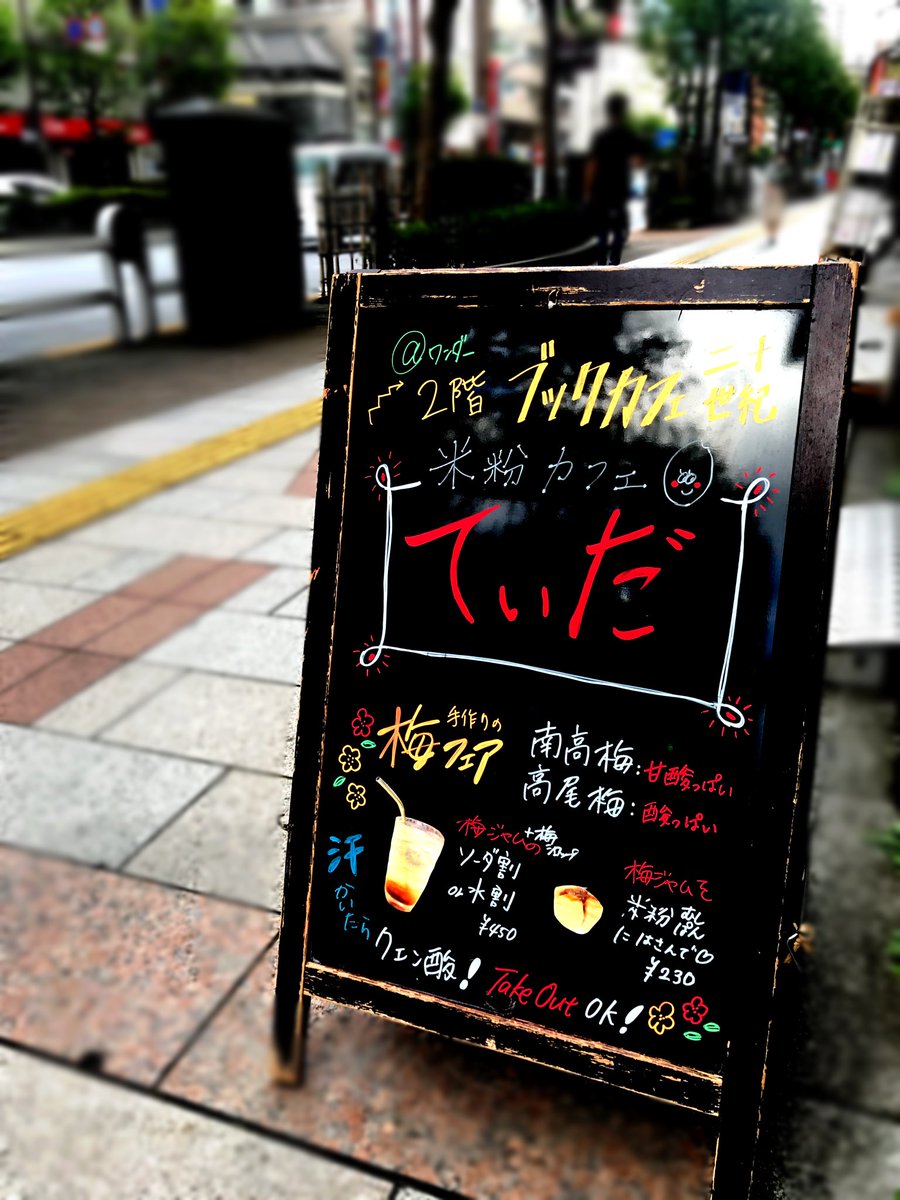 @ワンダー
2階 ブックカフェ 二十世紀
米粉カフェ
てぃだ
手作りの
梅フェア
南高梅:甘酸っぱい
高尾梅:酸っぱい
梅ジャムの+梅シロップ
ソーダ割
or水割
¥450
梅ジャムを
米粉蒸しぱん
にはさんで
¥230
汗かいたら
クエン酸!
Take Out OK!